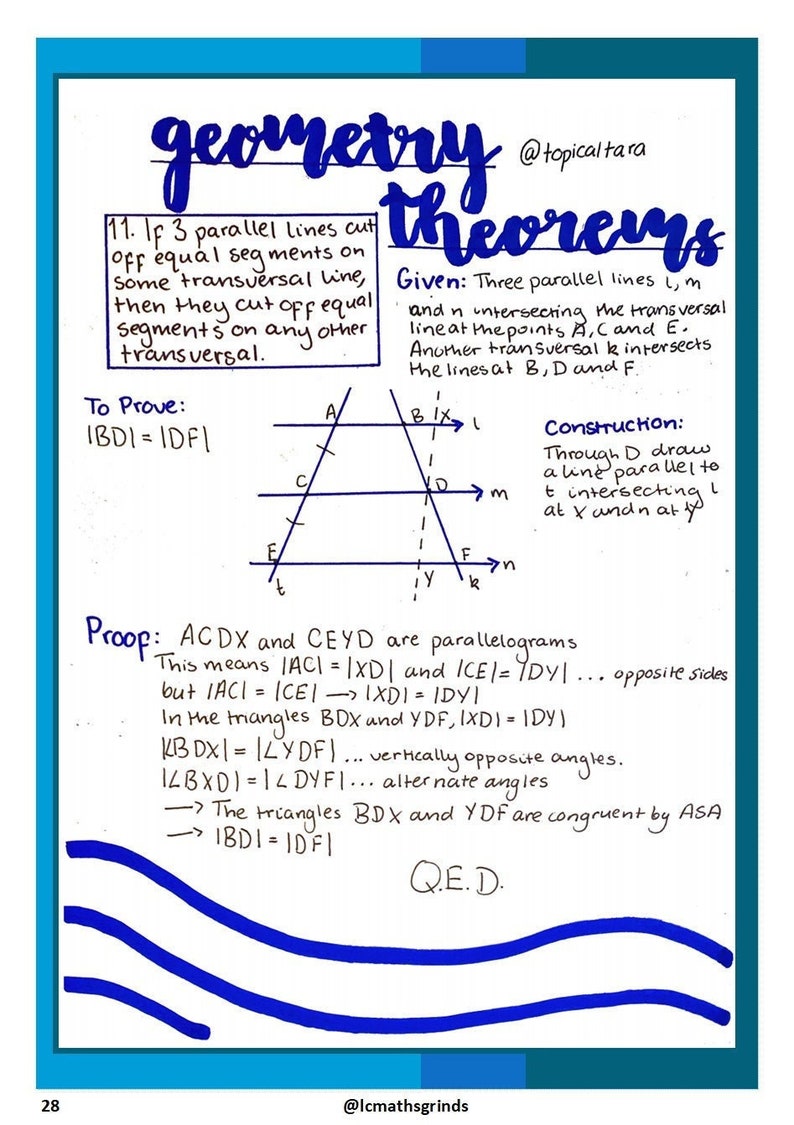 geometry
@topicaltara
theorems
11. If 3 parallel lines cut
off equal segments on
some transversal line,
then they cut off equal
segments on any other
transversal.
Given: Three parallel lines l, m
and n intersecting the transversal
line at the points A, C and E.
Another transversal k intersects
the lines at B, D and F.
To Prove:
|BD| = |DF|
A B X l
C D m
E F n
t Y k
Construction:
Through D draw
a line parallel to
t intersecting l
at X and n at Y
Proof: ACDX and CEYD are parallelograms
This means |AC| = |XD| and |CE| = |DY| ... opposite sides
but |AC| = |CE| → |XD| = |DY|
In the triangles BDX and YDF, |XD| = |DY|
|∠BDX| = |∠YDF| ... vertically opposite angles.
|∠BXD| = |∠DYF| ... alternate angles
→ The triangles BDX and YDF are congruent by ASA
→ |BD| = |DF|
Q.E.D.
28 @lcmathsgrinds